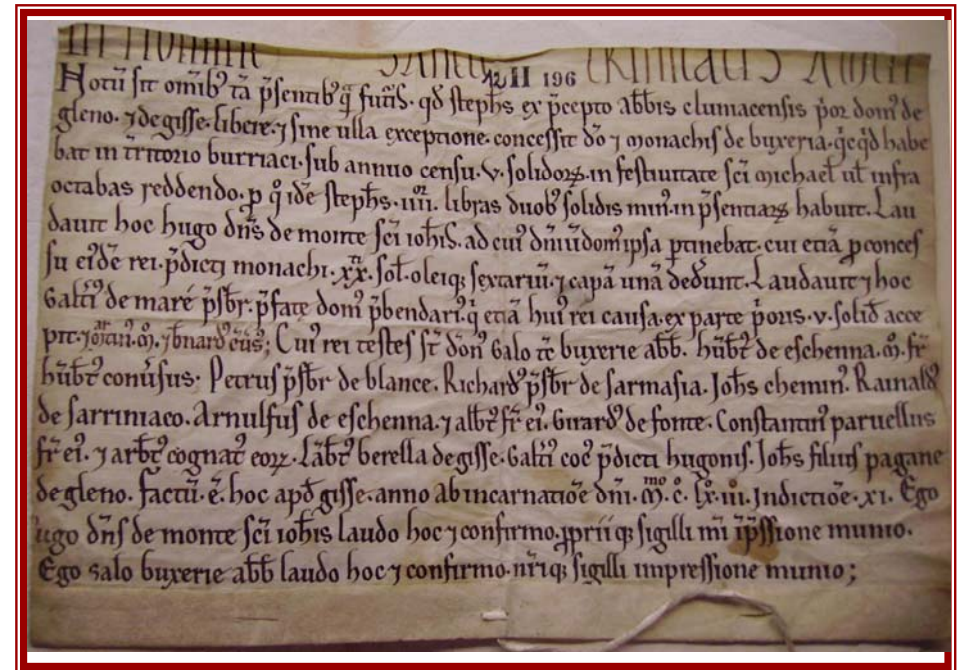 IN NOMINE SANCTE TRINITATIS AMEN
12 H 196
Notū sit omīb⁹ tā p̄sentib⁹ q̄ futīs. qđ steph̄s ex p̄cepto abb̄is clumacensis p̄or dom⁹ de
gleno. ⁊ de gisse. libere. ⁊ sine ulla exceptione. concessit dō ⁊ monachis de buxeria. qͥcqͥd habe
bat in t̄ritorio burriaci. sub annuo censu. v. solidoꝝ. in festiuitate sc̄i michael̄ ut̄ infra
octabas reddendo. ꝑ q̊ idē steph̄s. iiii.or libras duob⁹ solidis min⁹. in p̄sentiaꝝ habuit. Lau
dauit hoc hugo dn̄s de monte sc̄i ioh̄is. ad cui⁹ dn̄iū dom⁹ ipsa ꝑtinebat. cui etiā ꝓ conces
su ei⁹dē rei. p̄dicti monachi. xx.ti sol̄. oleiqꝫ sextariū. ⁊ capā unā dedūnt. Laudauit ⁊ hoc
Galt̄i⁹ de maré p̄sbr̄. p̄fate dom⁹ p̄bendari⁹. qͥ etiā hui⁹ rei causa. ex parte p̄oris. v. solid̄ acce
pit. ⁊ martin⁹. m̊. ⁊ b̄nard⁹ ei⁹; Cui⁹ rei testes s̄t don⁹ Galo tc̄ buxerie abb̄. hūbt⁹ de eschenna. m̊. fr̄
hūbt⁹ conūsus. Petrus p̄sbr̄ de blance. Richard⁹ p̄sbr̄ de sarmasia. Joh̄s chemin⁹. Rainald⁹
de sarriniaco. Arnulfus de eschenna. ⁊ albt⁹ fr̄ ei⁹. Girard⁹ de fonte. Constantin⁹ paruellus
fr̄ ei⁹. ⁊ arbt⁹ cognat⁹ eoꝝ. Lābt⁹ berella de gisse. Galt̄i⁹ coc⁹ p̄dicti hugonis. Joh̄s filius pagane
de gleno. factū. ē. hoc apđ gisse. anno ab incarnatiōe dn̄i. m̊.mo c̊. lx̊. iii. Indictiōe. xi. Ego
ugo dn̄s de monte sc̄i ioh̄is laudo hoc ⁊ confirmo. ꝓpriiqꝫ sigilli m̄i īp̄ssione munio.
Ego Galo buxerie abb̄ laudo hoc ⁊ confirmo. nr̄iqꝫ sigilli impressione munio;